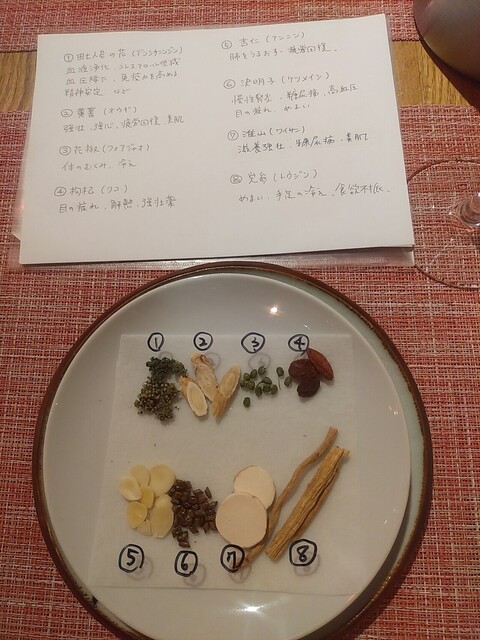 ① 田七人参の花 (デンシチニンジン)
血液浄化、コレステロール低減
血圧降下、免疫力を高める
精神安定 など
② 黄蓍 (オウギ)
強壮、強心、疲労回復、美肌
③ 花椒 (ファアジャオ)
体のむくみ、冷え
④ 枸杞 (クコ)
目の疲れ、解熱、強壮薬
⑤ 杏仁 (アンニン)
肺をうるおす、疲労回復、
⑥ 決明子 (ケツメイシ)
慢性便秘、糖尿病、高血圧
目の疲れ、めまい
⑦ 淮山 (ワイサン)
滋養強壮、糖尿病、美肌
⑧ 党参 (トウジン)
めまい、手足の冷え、食欲不振、
① ② ③ ④
⑤ ⑥ ⑦ ⑧